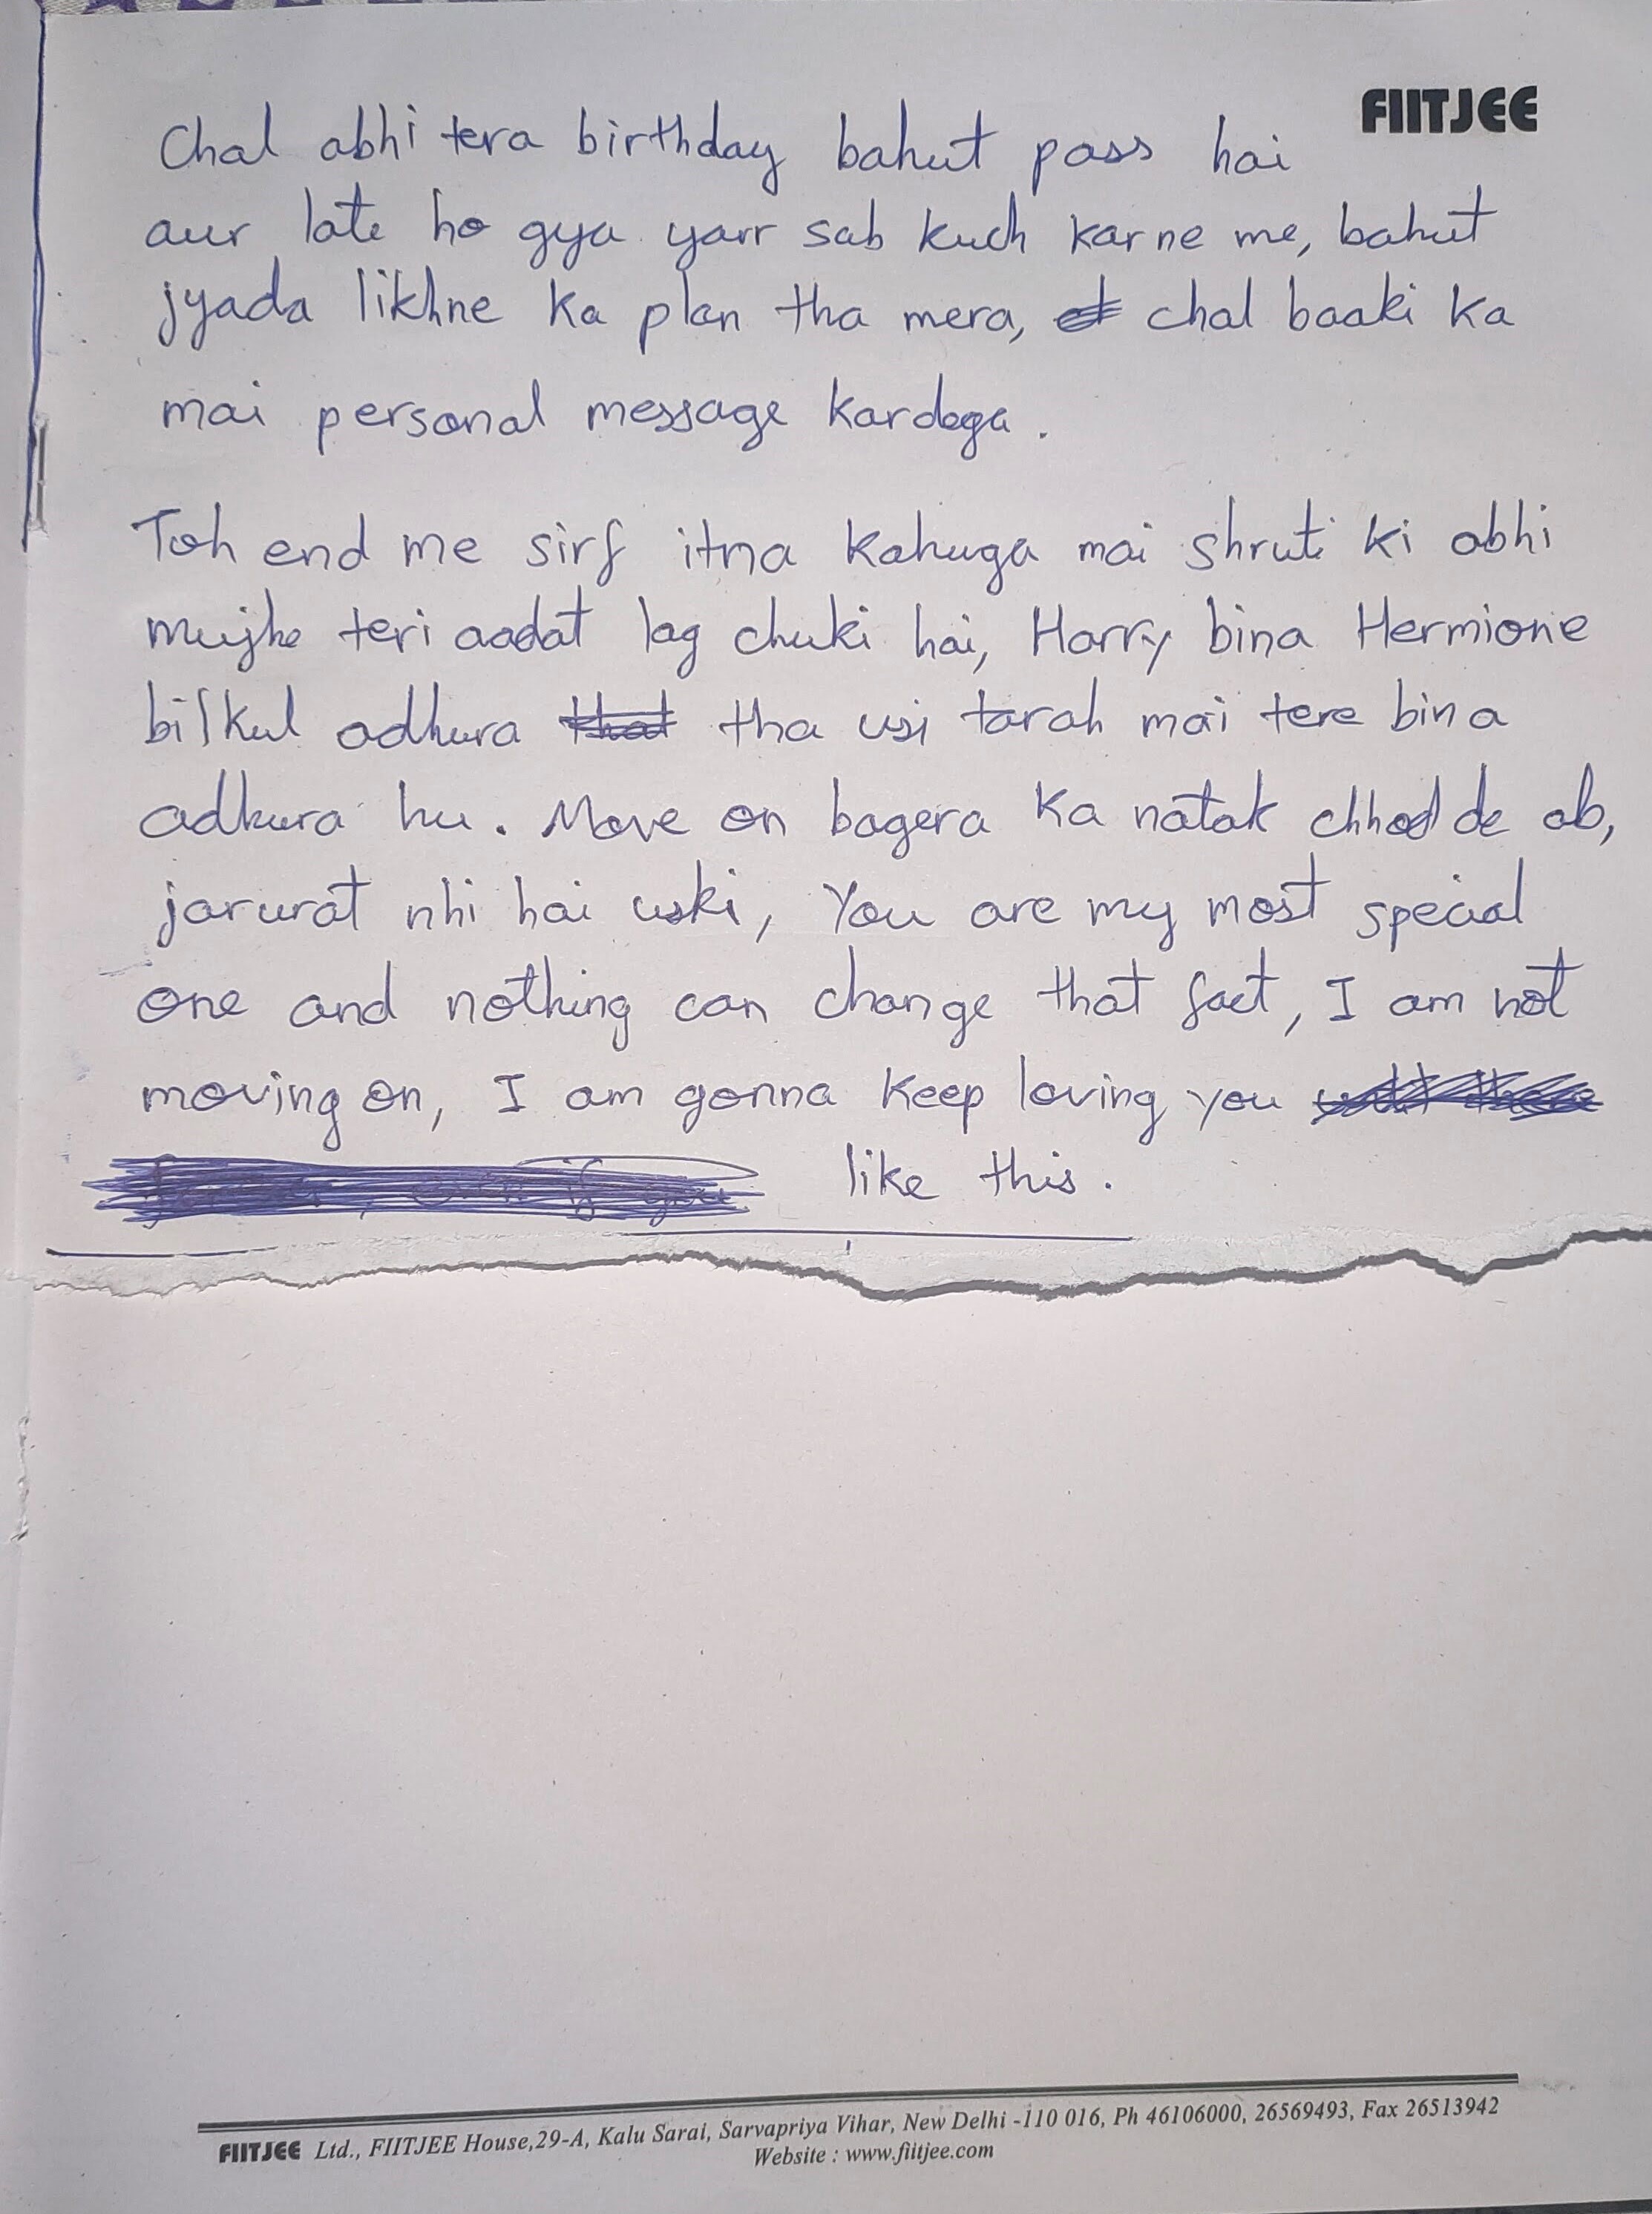 FIITJEE
Chal abhi tera birthday bahut pass hai
aur late ho gya yarr sab kuch karne me, bahut
jyada likhne ka plan tha mera, chal baaki ka
mai personal message kardega.
Toh end me sirf itna kahuga mai shruti ki abhi
mujhe teri aadat lag chuki hai, Harry bina Hermione
bilkul adhura that tha usi tarah mai tere bina
adhura hu. Move on bagera ka natak chhod de ab,
jarurat nhi hai uski, You are my most special
one and nothing can change that fact, I am not
moving on, I am gonna keep loving you
even if you like this.
FIITJEE Ltd., FIITJEE House,29-A, Kalu Sarai, Sarvapriya Vihar, New Delhi -110 016, Ph 46106000, 26569493, Fax 26513942
Website : www.fiitjee.com